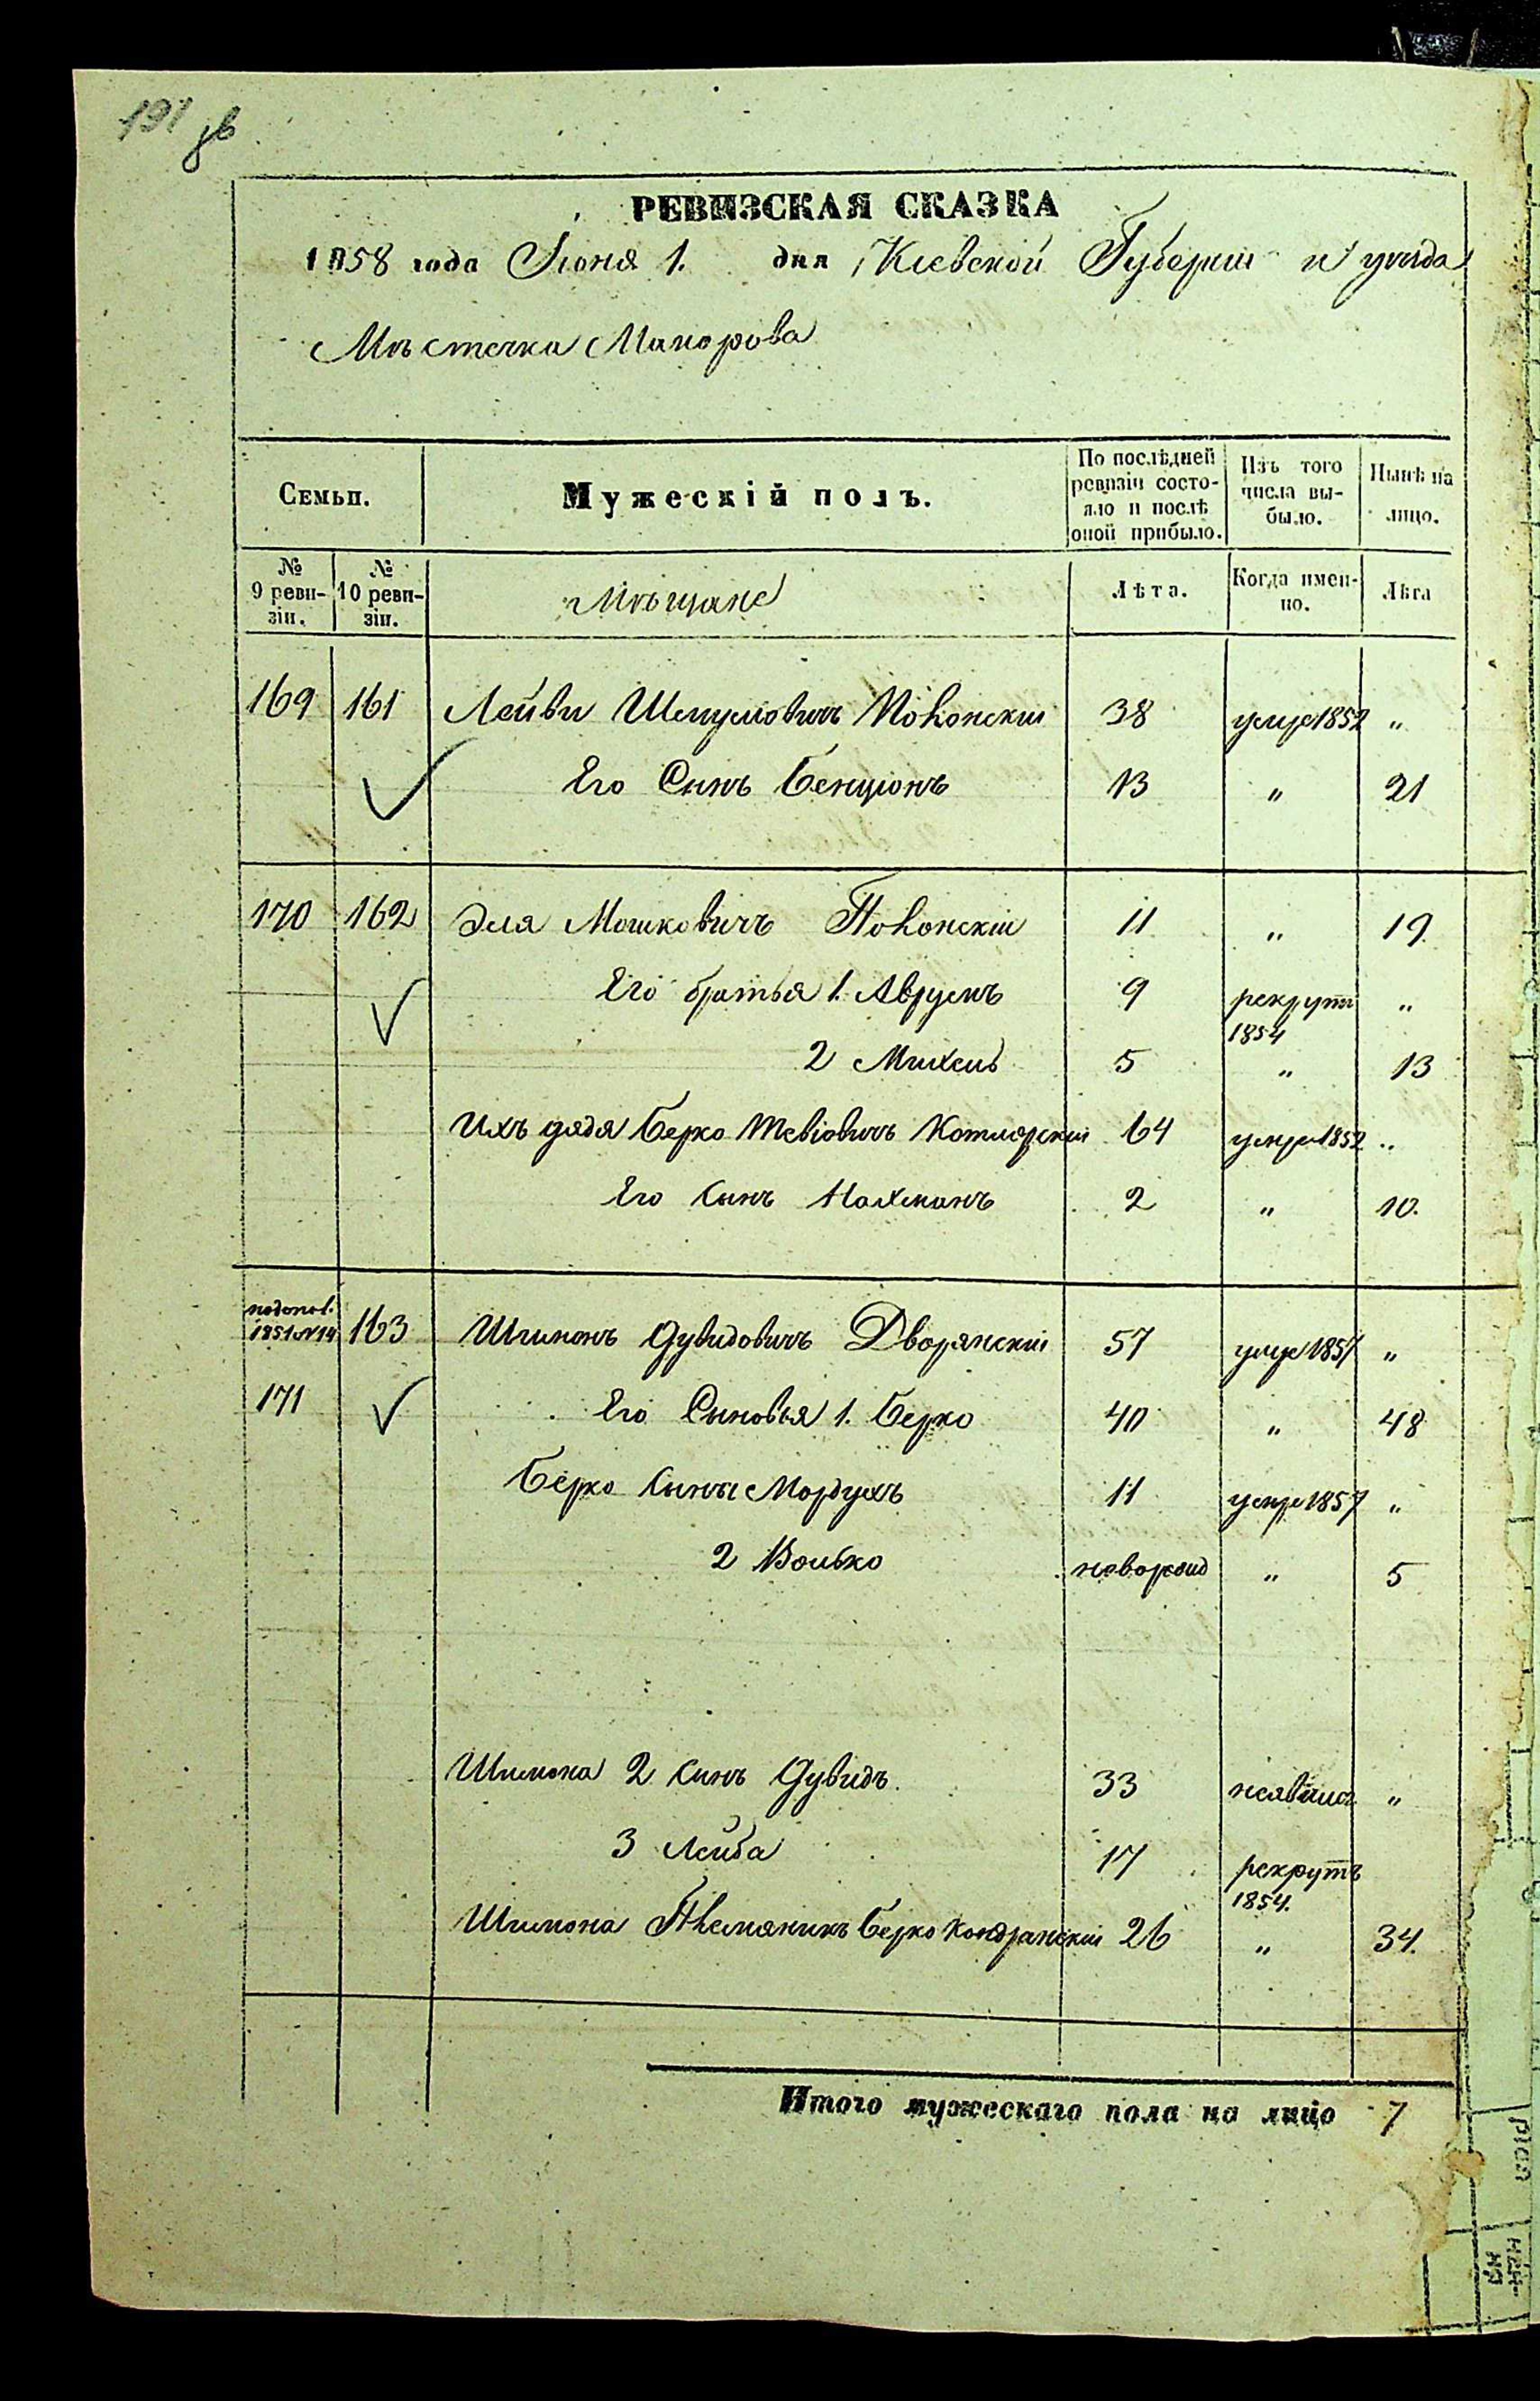 191 зв
РЕВИЗСКАЯ СКАЗКА
1858 года Іюня 1. дня Кіевской Губерніи и уѣзда
Мѣстечка Макарова
Семьи.
Мужескій полъ.
По послѣдней ревизіи состо-
яло и послѣ
оной прибыло.
Изъ того
числа вы-
было.
Нынѣ на
лицо.
№
9 реви-
зіи.
№
10 реви-
зіи.
Мѣщане
Лѣта.
Когда имен-
но.
Лѣта
169 161 Лейви Шмуловичъ 38 умре 1852 "
Его Сынъ Бенціонъ 13 " 21
170 162 Эля Мошковичъ 11 " 19
Его братья 1. Аврумъ 9 рекрутъ 1854 "
2 Михель 5 " 13
Ихъ дядя Берко Тевіовичъ Котлярскій 64 умре 1852 "
Его сынъ Нахманъ 2 " 10.
1851 №14 163 Шимонъ Дувидовичъ Дворянскій 57 умре 1857 "
171 Его Сыновья 1. Берко 40 " 48
Берко сыны Мордухъ 11 умре 1857 "
2 Волько новорожд " 5
Шимона 2 сынъ Дувидъ. 33 "
3 Лейба 17 рекрутъ 1854.
Шимона Племяникъ Берко 26 " 34.
Итого мужескаго пола на лицо 7